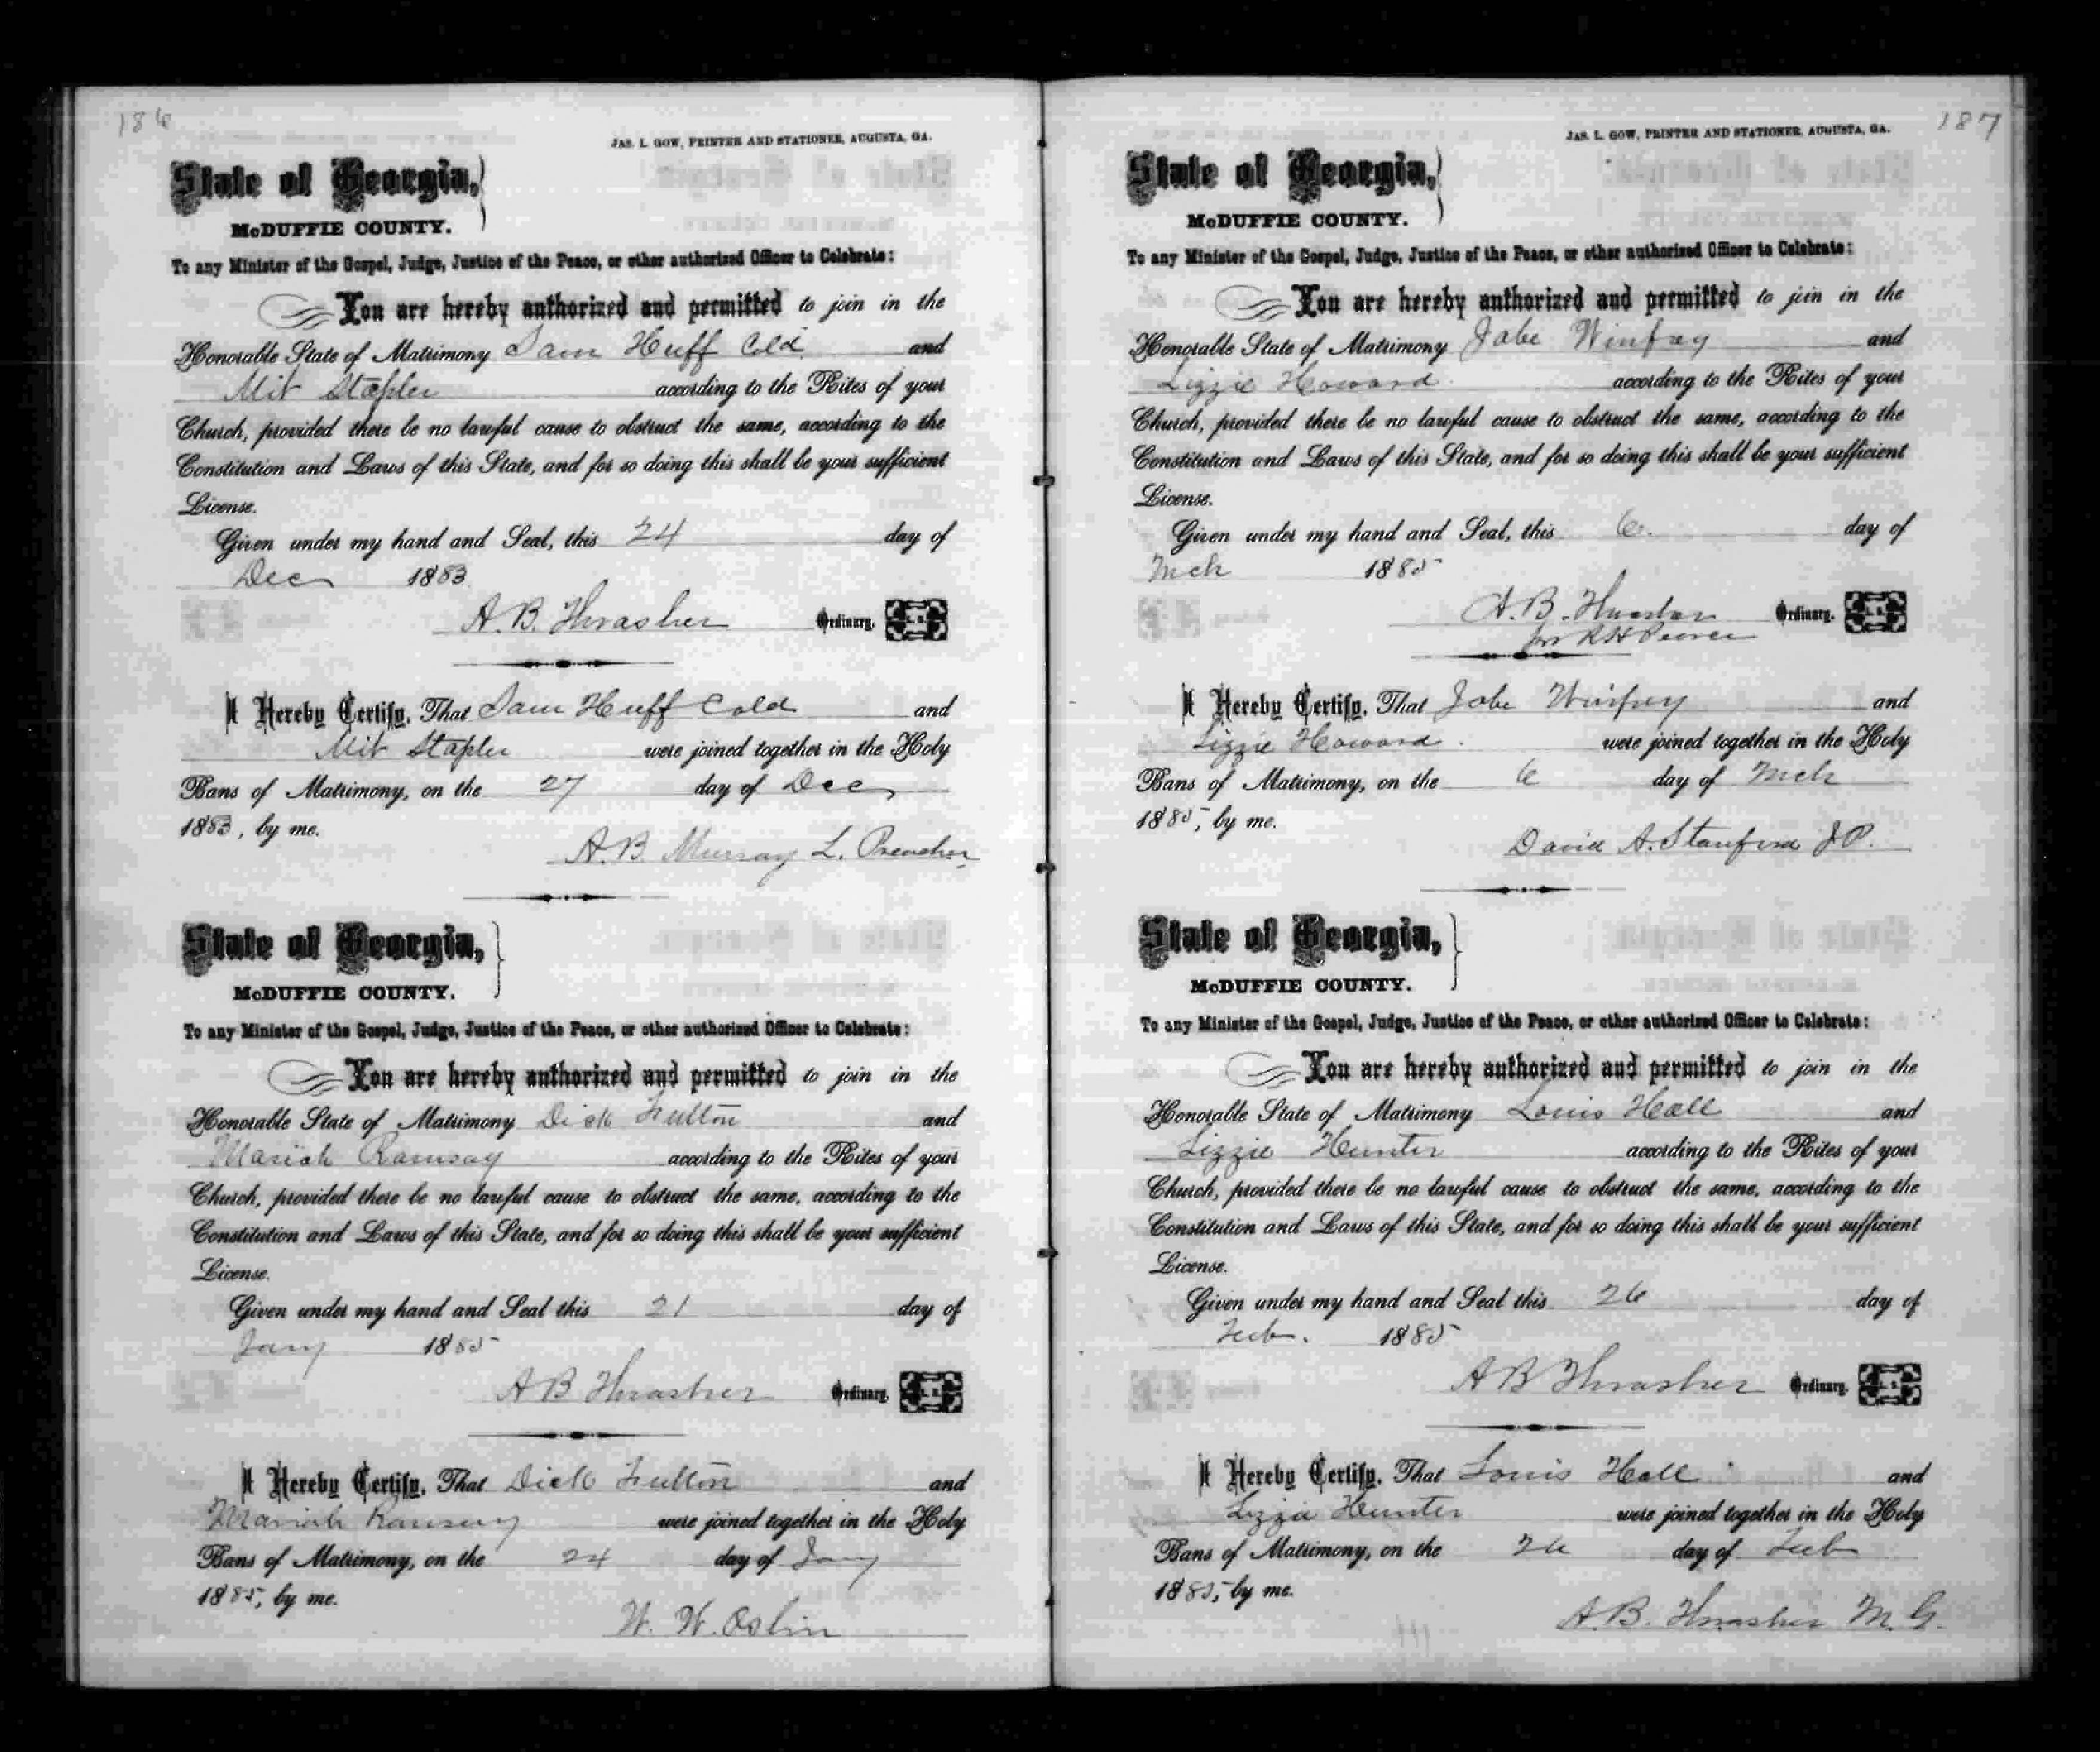 186
JAS. L. GOW, PRINTER AND STATIONER, AUGUSTA, GA.
State of Georgia,
McDUFFIE COUNTY.
To any Minister of the Gospel, Judge, Justice of the Peace, or other authorized Officer to Celebrate:
You are hereby authorized and permitted to join in the
Honorable State of Matrimony Sam Huff Cold and
Mit Stapler according to the Rites of your
Church, provided there be no lawful cause to obstruct the same, according to the
Constitution and Laws of this State, and for so doing this shall be your sufficient
License.
Given under my hand and Seal, this 24 day of
Dec 1883
A. B. Thrasher Ordinary. L. S.
I Hereby Certify, That Sam Huff Cold and
Mit Stapler were joined together in the Holy
Bans of Matrimony, on the 27 day of Dec
1883, by me.
A. B. Murray L. Preacher
State of Georgia,
McDUFFIE COUNTY.
To any Minister of the Gospel, Judge, Justice of the Peace, or other authorized Officer to Celebrate:
You are hereby authorized and permitted to join in the
Honorable State of Matrimony Dick Fulton and
Mariah Ramsay according to the Rites of your
Church, provided there be no lawful cause to obstruct the same, according to the
Constitution and Laws of this State, and for so doing this shall be your sufficient
License.
Given under my hand and Seal this 21 day of
Jany 1885
A B Thrasher Ordinary. L. S.
I Hereby Certify, That Dick Fulton and
Mariah Ramsey were joined together in the Holy
Bans of Matrimony, on the 24 day of Jany
1885, by me.
W. W. Oslin
187
JAS. L. GOW, PRINTER AND STATIONER, AUGUSTA, GA.
State of Georgia,
McDUFFIE COUNTY.
To any Minister of the Gospel, Judge, Justice of the Peace, or other authorized Officer to Celebrate:
You are hereby authorized and permitted to join in the
Honorable State of Matrimony Jabe Winfrey and
Lizzie Howard according to the Rites of your
Church, provided there be no lawful cause to obstruct the same, according to the
Constitution and Laws of this State, and for so doing this shall be your sufficient
License.
Given under my hand and Seal, this 6 day of
Mch 1885
A. B. Thrasher Ordinary. L. S.
R H Pearce
I Hereby Certify, That Jabe Winfrey and
Lizzie Howard were joined together in the Holy
Bans of Matrimony, on the 6 day of Mch
1885, by me.
David A. Stanford J P.
State of Georgia,
McDUFFIE COUNTY.
To any Minister of the Gospel, Judge, Justice of the Peace, or other authorized Officer to Celebrate:
You are hereby authorized and permitted to join in the
Honorable State of Matrimony Louis Hall and
Lizzie Hunter according to the Rites of your
Church, provided there be no lawful cause to obstruct the same, according to the
Constitution and Laws of this State, and for so doing this shall be your sufficient
License.
Given under my hand and Seal this 26 day of
Feb. 1885
A B Thrasher Ordinary. L. S.
I Hereby Certify, That Louis Hall and
Lizzie Hunter were joined together in the Holy
Bans of Matrimony, on the 26 day of Feb
1885, by me.
A. B. Thrasher M. G.